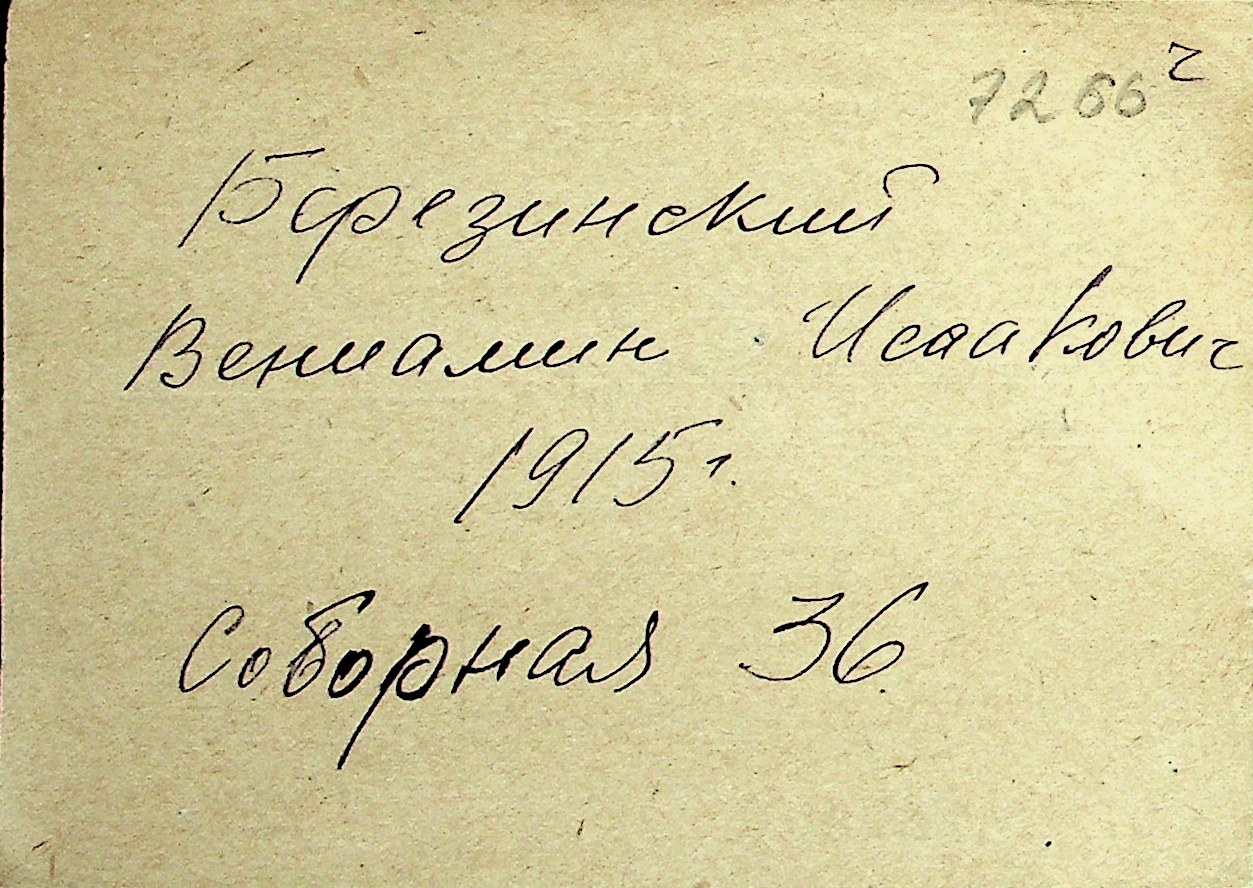 7266 ч
Березинский
Вениамин Исаакович
1915 г.
Соборная 36